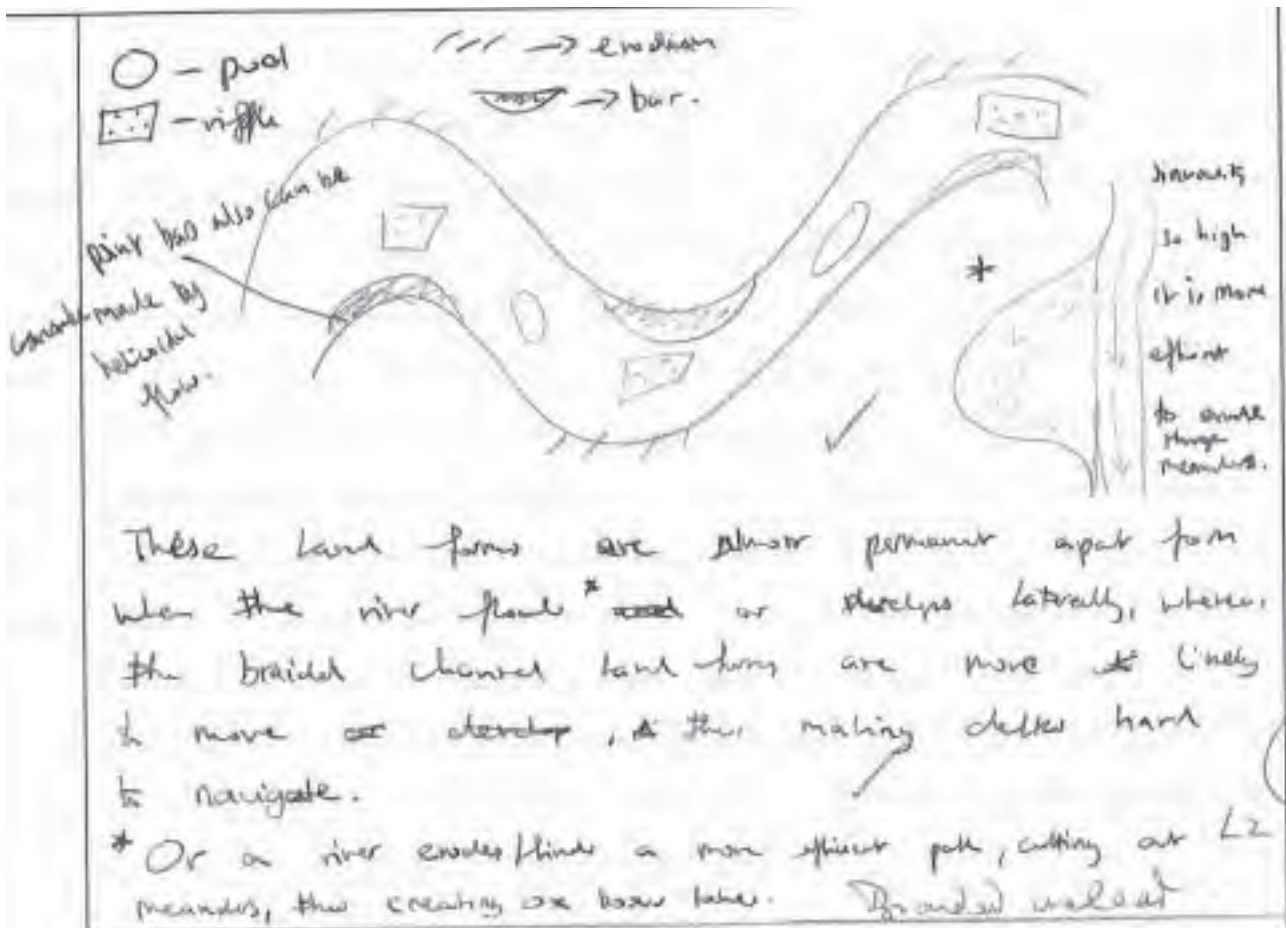 O - pool
/// → erosion
- riffle
→ bar.
point bar also can be
made by
helicoidal
flow.
*
sinuosity
so high
it is more
efficient
to erode
through
meanders.
These land forms are almost permanent apart from
when the river floods * or develops laterally, whereas
the braided channel land forms are more likely
to move , thus making deltas hard
to navigate.
* Or a river erodes/finds a more efficient path, cutting out
L2
meanders, thus creating ox bow lakes.